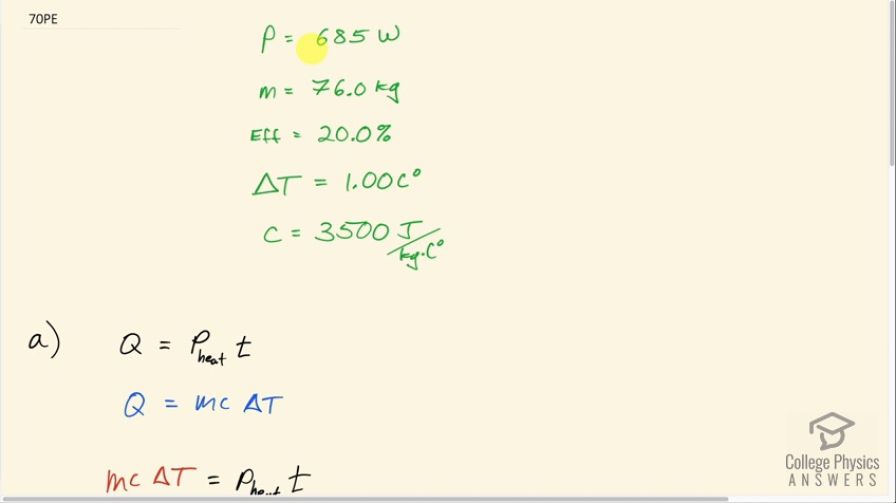 70PE
P = 685 W
m = 76.0 kg
Eff = 20.0%
ΔT = 1.00 C°
c = 3500 J/kg·C°
a) Q = P_heat t
Q = mc ΔT
mc ΔT = P_heat t
College Physics
ANSWERS